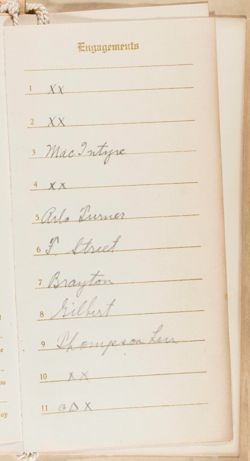 Engagements
1 XX
2 XX
3 MacIntyre
4 XX
5 Arlo Turner
6 F Street
7 Brayton
8 Gilbert
9 Thompson
10 XX
11 X